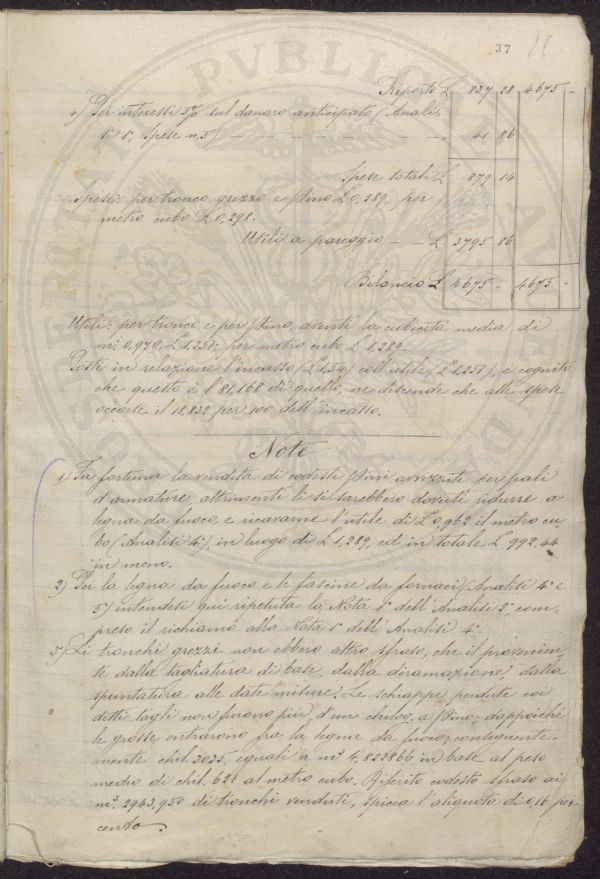 37
Riporto L 837 28 4675 -
4) Per interessi 5% sul danaro anticipato (Anali,
si 1ª, Spese n. 5) 41 86
Spese totali L 879 14
Spese: per tronco grezzo e pino L 0,289, per
metro cubo L 0,298.
Utili a pareggio L 3795 86
Bilancio L 4675 - 4675 -
Utili: per tronco e per pino, aventi la cubicità media di
m.c 0,970. L 1,251; per metro cubo L 1,289.
Posti in relazione l'incasso (L 1,54) coll'utile (L 1,251), è cognito
che questo è l'81,168 di quello, ne discende che alle spese
occorse il 18,832 per 100 dell'incasso.
Note
1) Fu fortuna la vendita di codesti pini avvezzati per pali
d'armature, altrimenti li si sarebbero dovuti ridurre a
legna da fuoco, e ricavarne l'utile di L 0,962 il metro cu,
bo (Analisi 4ª), in luogo di L 1,289, ed in totale L 992,44
in meno.
2) Per la legna da fuoco e le fascine da fornaci (Analisi 4ª e
5ª) intendesi qui ripetuta la Nota 1ª dell'Analisi 2ª, com,
preso il richiamo alla Nota 1ª dell'Analisi 4ª.
3) Li tronchi grezzi non ebbero altro sfraso, che il provenien,
te dalla tagliatura di base, dalla diramazione, dalla
spuntatura alle date misure. Le schiappe perdute coi
detti tagli non furono più d'un chilog. a pino, dappoichè
le grosse entrarono fra la legna da fuoco; conseguente,
mente chil. 3035, eguali a m.c 4,822866 in base al peso
medio di chil. 621 al metro cubo. Riferito codesto sfraso ai
m.c 2943,950 di tronchi venduti, spicca l'aliquota di 0,16 per
cento.